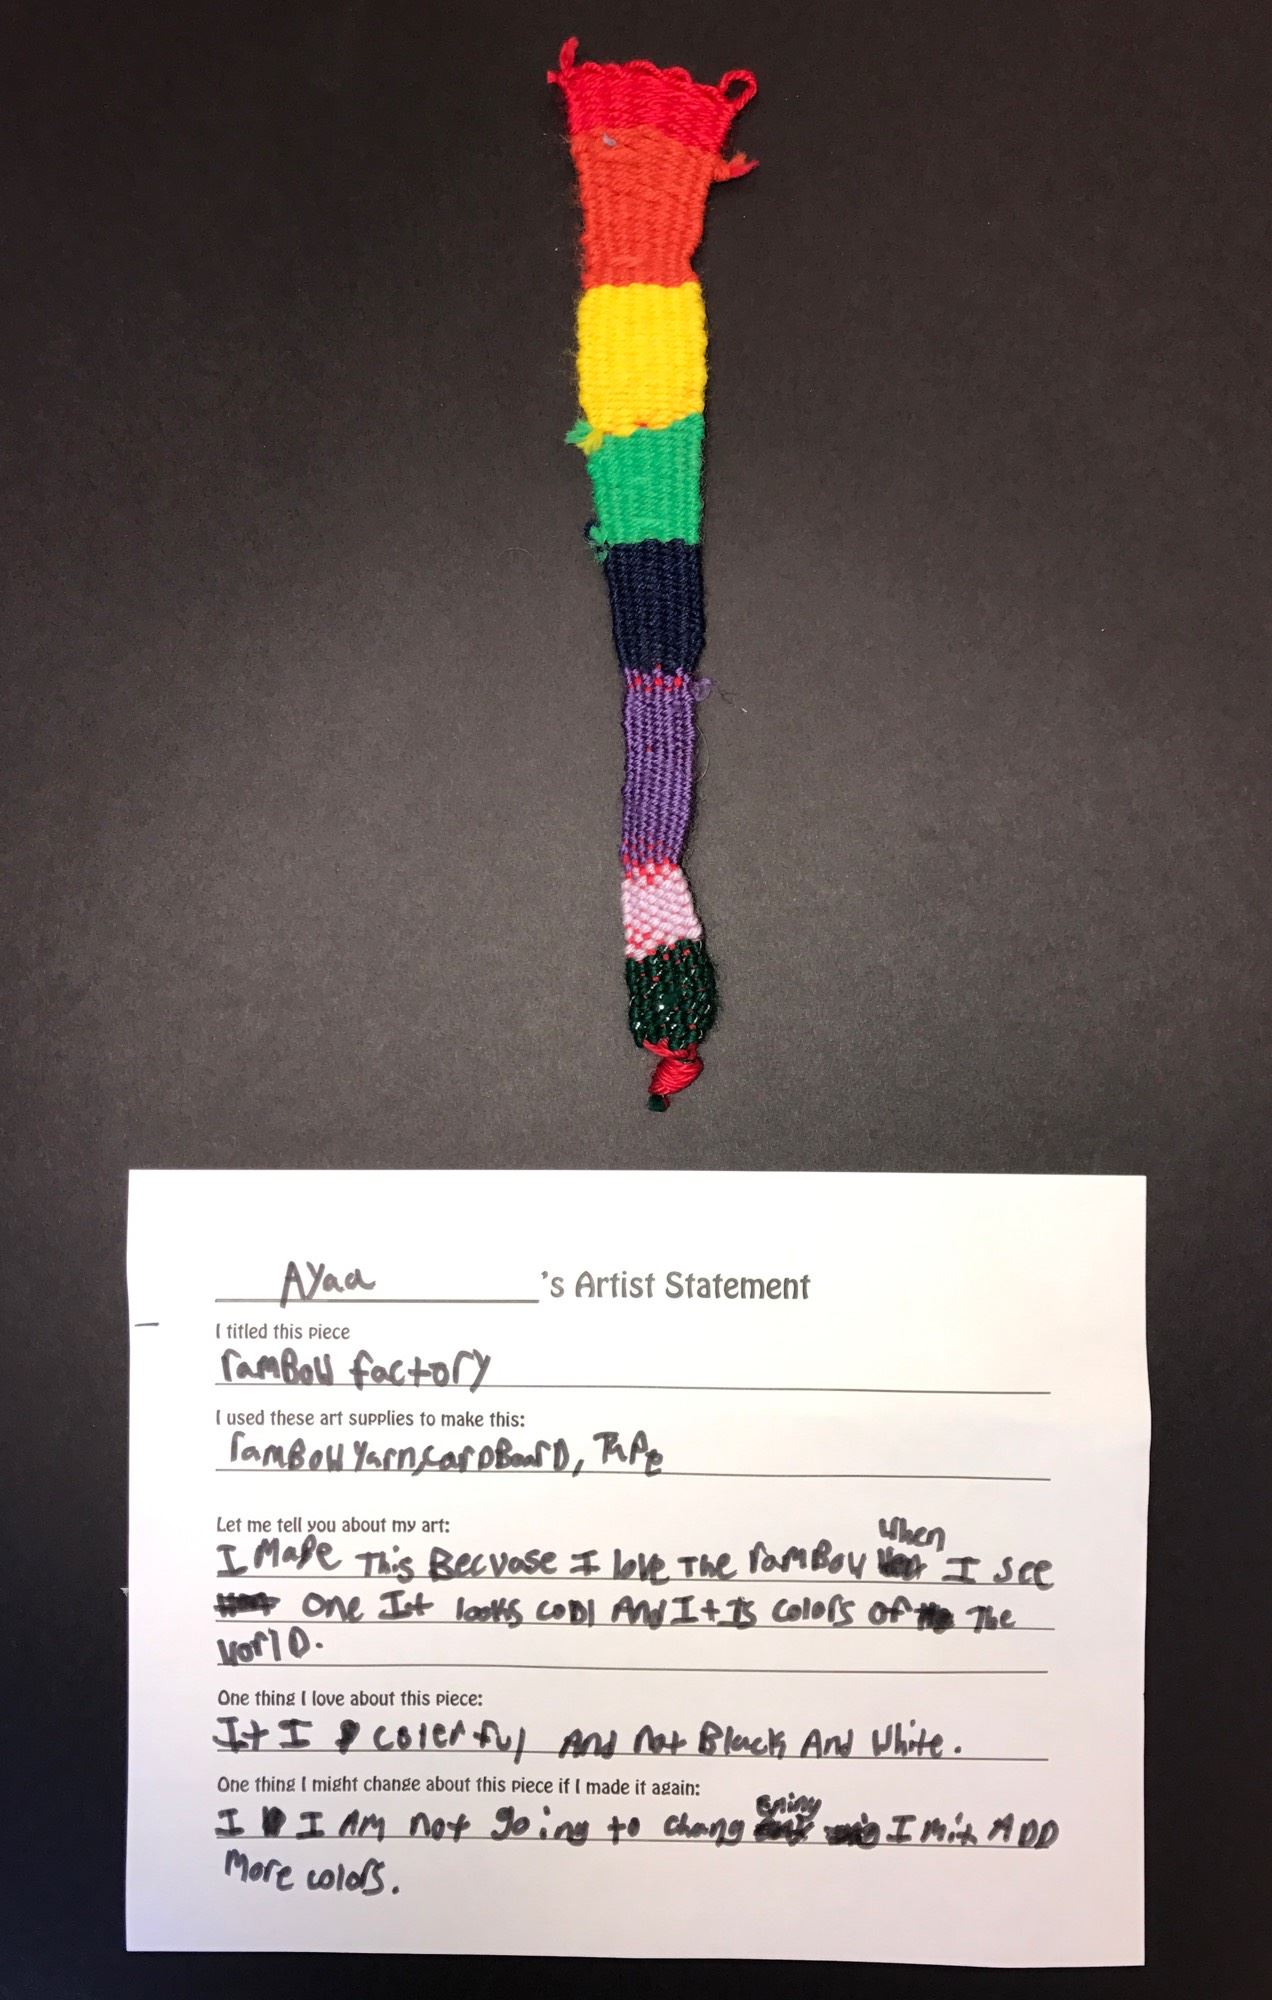 AYaa 's Artist Statement
I titled this piece
ramBow factory
I used these art supplies to make this:
ramBow Yarn, carDBoarD, TaPe
Let me tell you about my art:
when
I MaDe This Becuase I love The ramBow I see
one It looks cool And It Is colors of The
worlD.
One thing I love about this piece:
It I colerful And not Black And white.
One thing I might change about this piece if I made it again:
I I Am not going to chang I mit ADD
More colors.